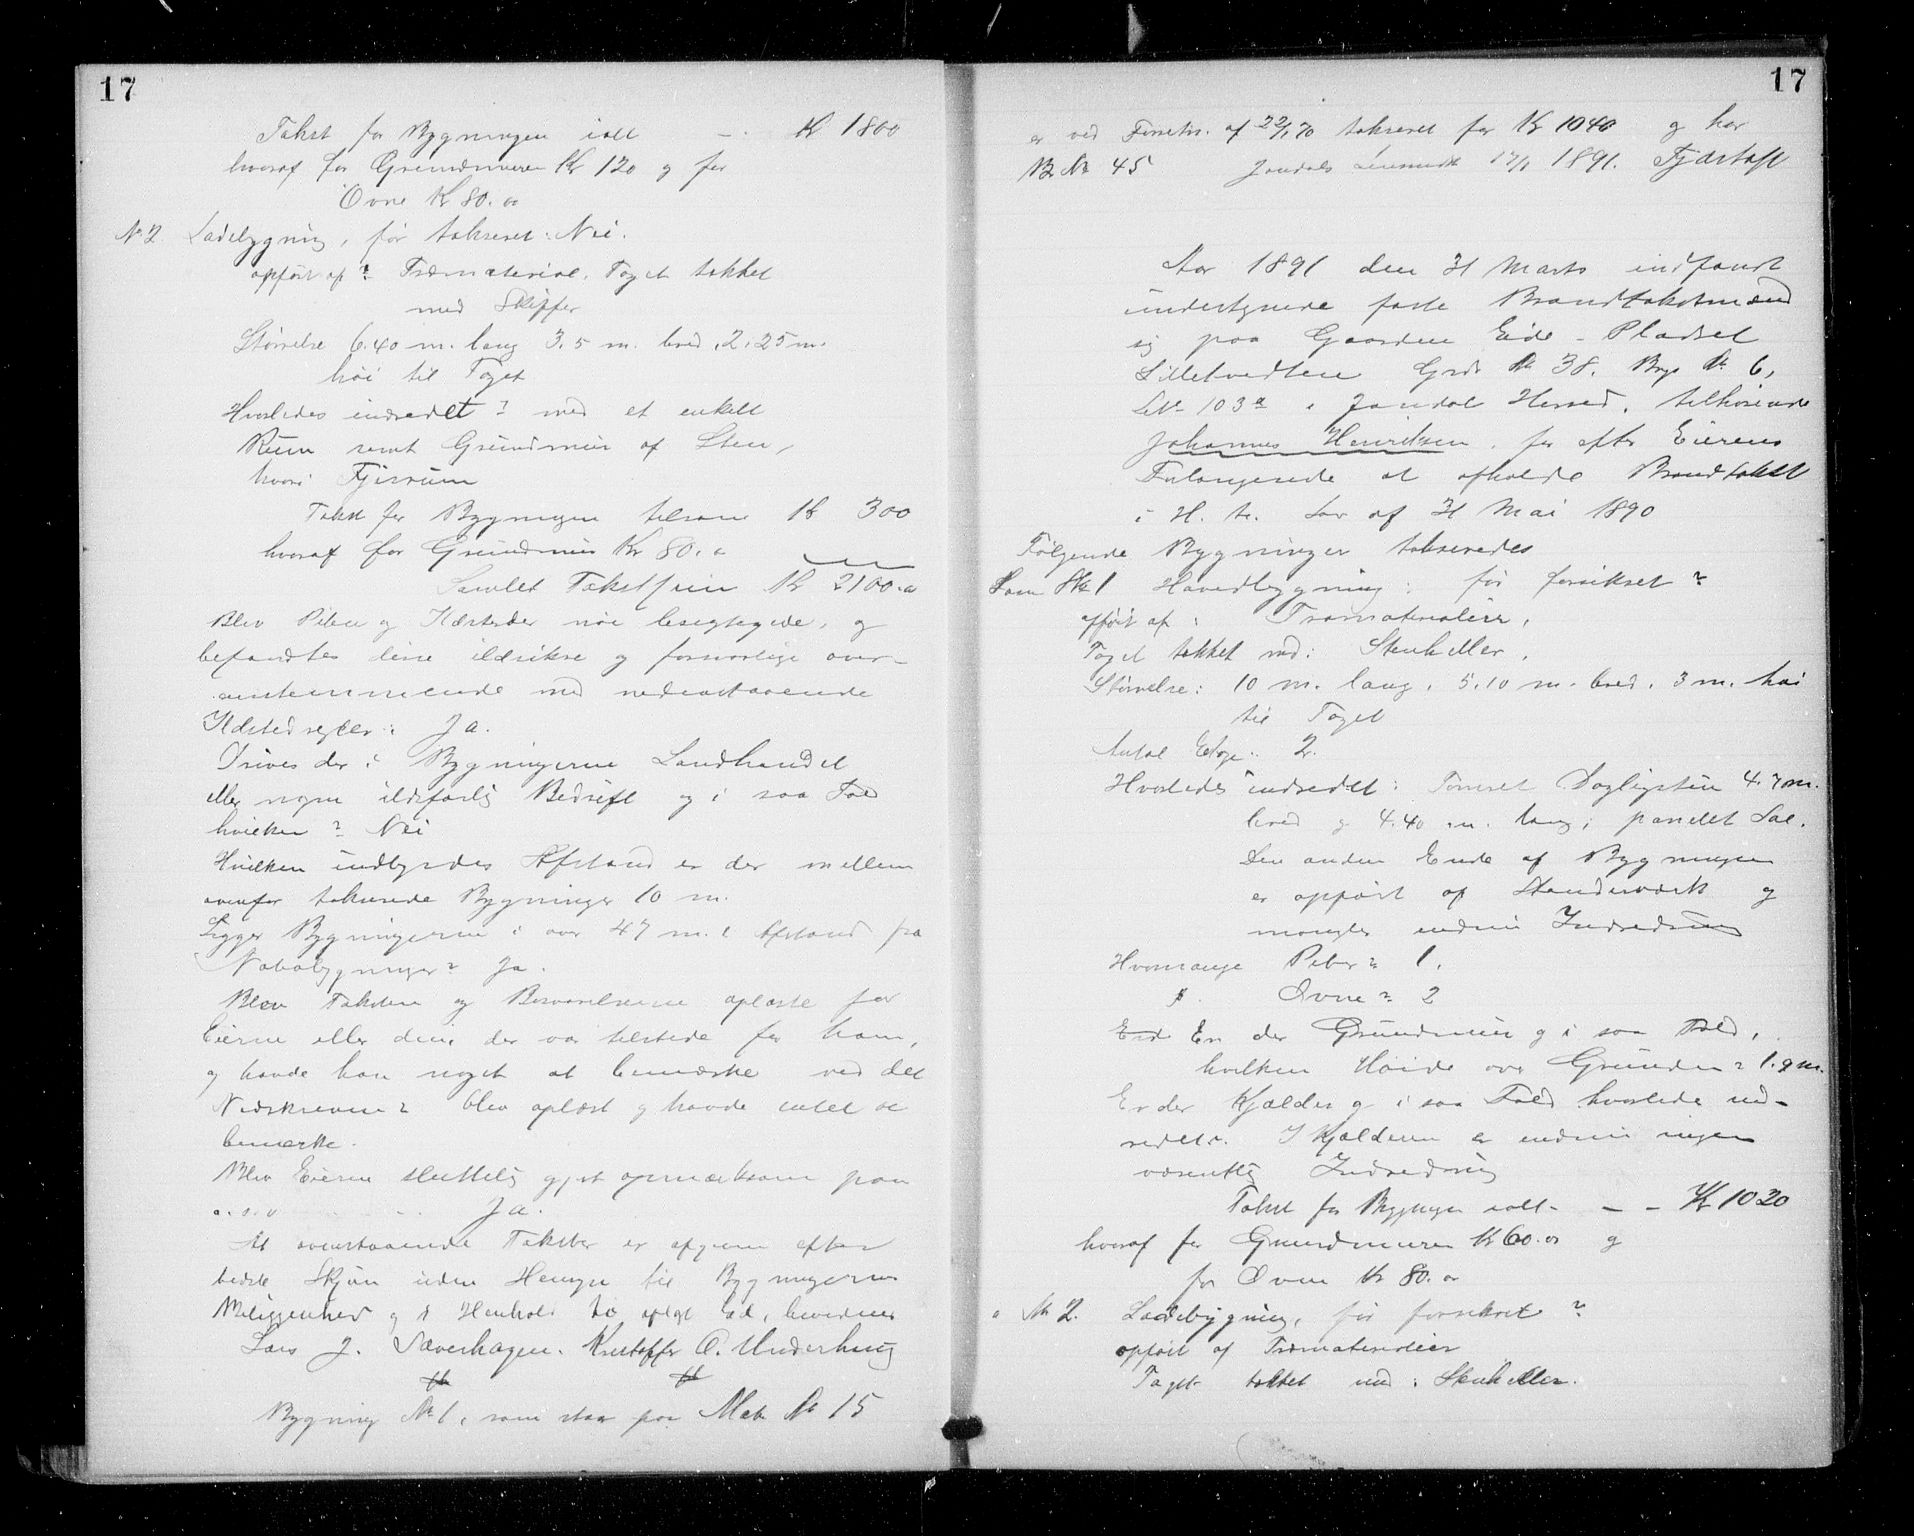 17
Takst for Bygningen ialt — . Kr 1800
hvoraf for Grundmuren Kr 120 og for
Ovne Kr 80. oo
No 2 Ladebygning, før takseret: Nei.
opført af? Træmateriale. Taget tækket
med Skiffer
Størrelse 6.40 m. lang 3.5 m. bred. 2.25 m.
høi til Taget
Hvorledes indredet? med et enkelt
Rum samt Grundmur af Sten,
hvori Fjøsrum
Takst for Bygningen tilsam Kr 300
hvoraf for Grundmur Kr 80. o
Samlet Takstsum Kr 2100. o
Blev Piben og Ildsteder nøie besigtigede, og
befandtes disse ildsikre og forsvarlige over-
ensstemmende med nedenstaaende
Ildstedregler: Ja.
Drives der i Bygningerne Landhandel
eller nogen ildsfarlig Bedrift og i saa Fald
hvilken? Nei
Hvilken indbyrdes Afstand er der mellem
ovenfor takserede Bygninger 10 m.
Ligger Bygningerne i over 47 m.s Afstand fra
Nabobygninger? Ja.
Blev Taksten og Besvarelserne oplæste for
Eieren eller den, der var tilstede for ham,
og havde han noget at bemærke ved det
Nedskrevne? blev oplæst og havde intet at
bemærke.
Blev Eieren sluttelig gjort opmærksom paa
o.s.v. Ja.
At ovenstaaende Takster er afgivne efter
bedste Skjøn uden Hensyn til Bygningernes
Beliggenhed og i Henhold til aflagt Ed, bevidnes
Lars J. Saverhagen. Kristoffer O. Underhaug
Bygning No 1, som staar paa Mat. No 15
17
er ved Forretn. af 22/1 70 takseret for Kr 1040 og har
Br No 45 Jondals Lensmd 17/4 1891. Fjærtoft
Aar 1891 den 31 Marts indfandt
undertegnede faste Brandtakstmænd
sig paa Gaarden Eide - Pladset
Lilletvedten Grds No 38. Brgs No 6,
LNo 103a i Jondal Herred, tilhørende
Johannes Henriksen, for efter Eierens
Forlangende at afholde Brandtakst
i H. t. Lov af 31 Mai 1890
Følgende Bygninger takseredes
Som No 1 Hovedbygning: før forsikret?
opført af: Træmaterialier.
Taget tækket med: Stenheller.
Størrelse: 10 m. lang, 5.10 m. bred. 3 m. høi
til Taget
Antal Etage: 2.
Hvorledes indredet: Tømret Dagligstue 4.7 m.
bred og 4.40 m. lang; panelet Sal.
Den anden Ende af Bygningen
er opført af Stenderværk og
mangler endnu Indredning
Hvormange Piber? 1.
Ovne? 2
Er der Grundmur og i saa Fald,
hvilken Høide over Grunden? 1.9 m.
Er der Kjælder og i saa Fald hvorledes ind-
redet? I Kjælderen er endnu ingen
væsentlig Indredning
Takst for Bygningen ialt - — - Kr 1020
hvoraf for Grundmuren Kr 60. oo og
for Ovne Kr 80. oo
" No 2. Ladebygning, før forsikret?
opført af Træmaterialier
Taget tækket med: Stenheller.